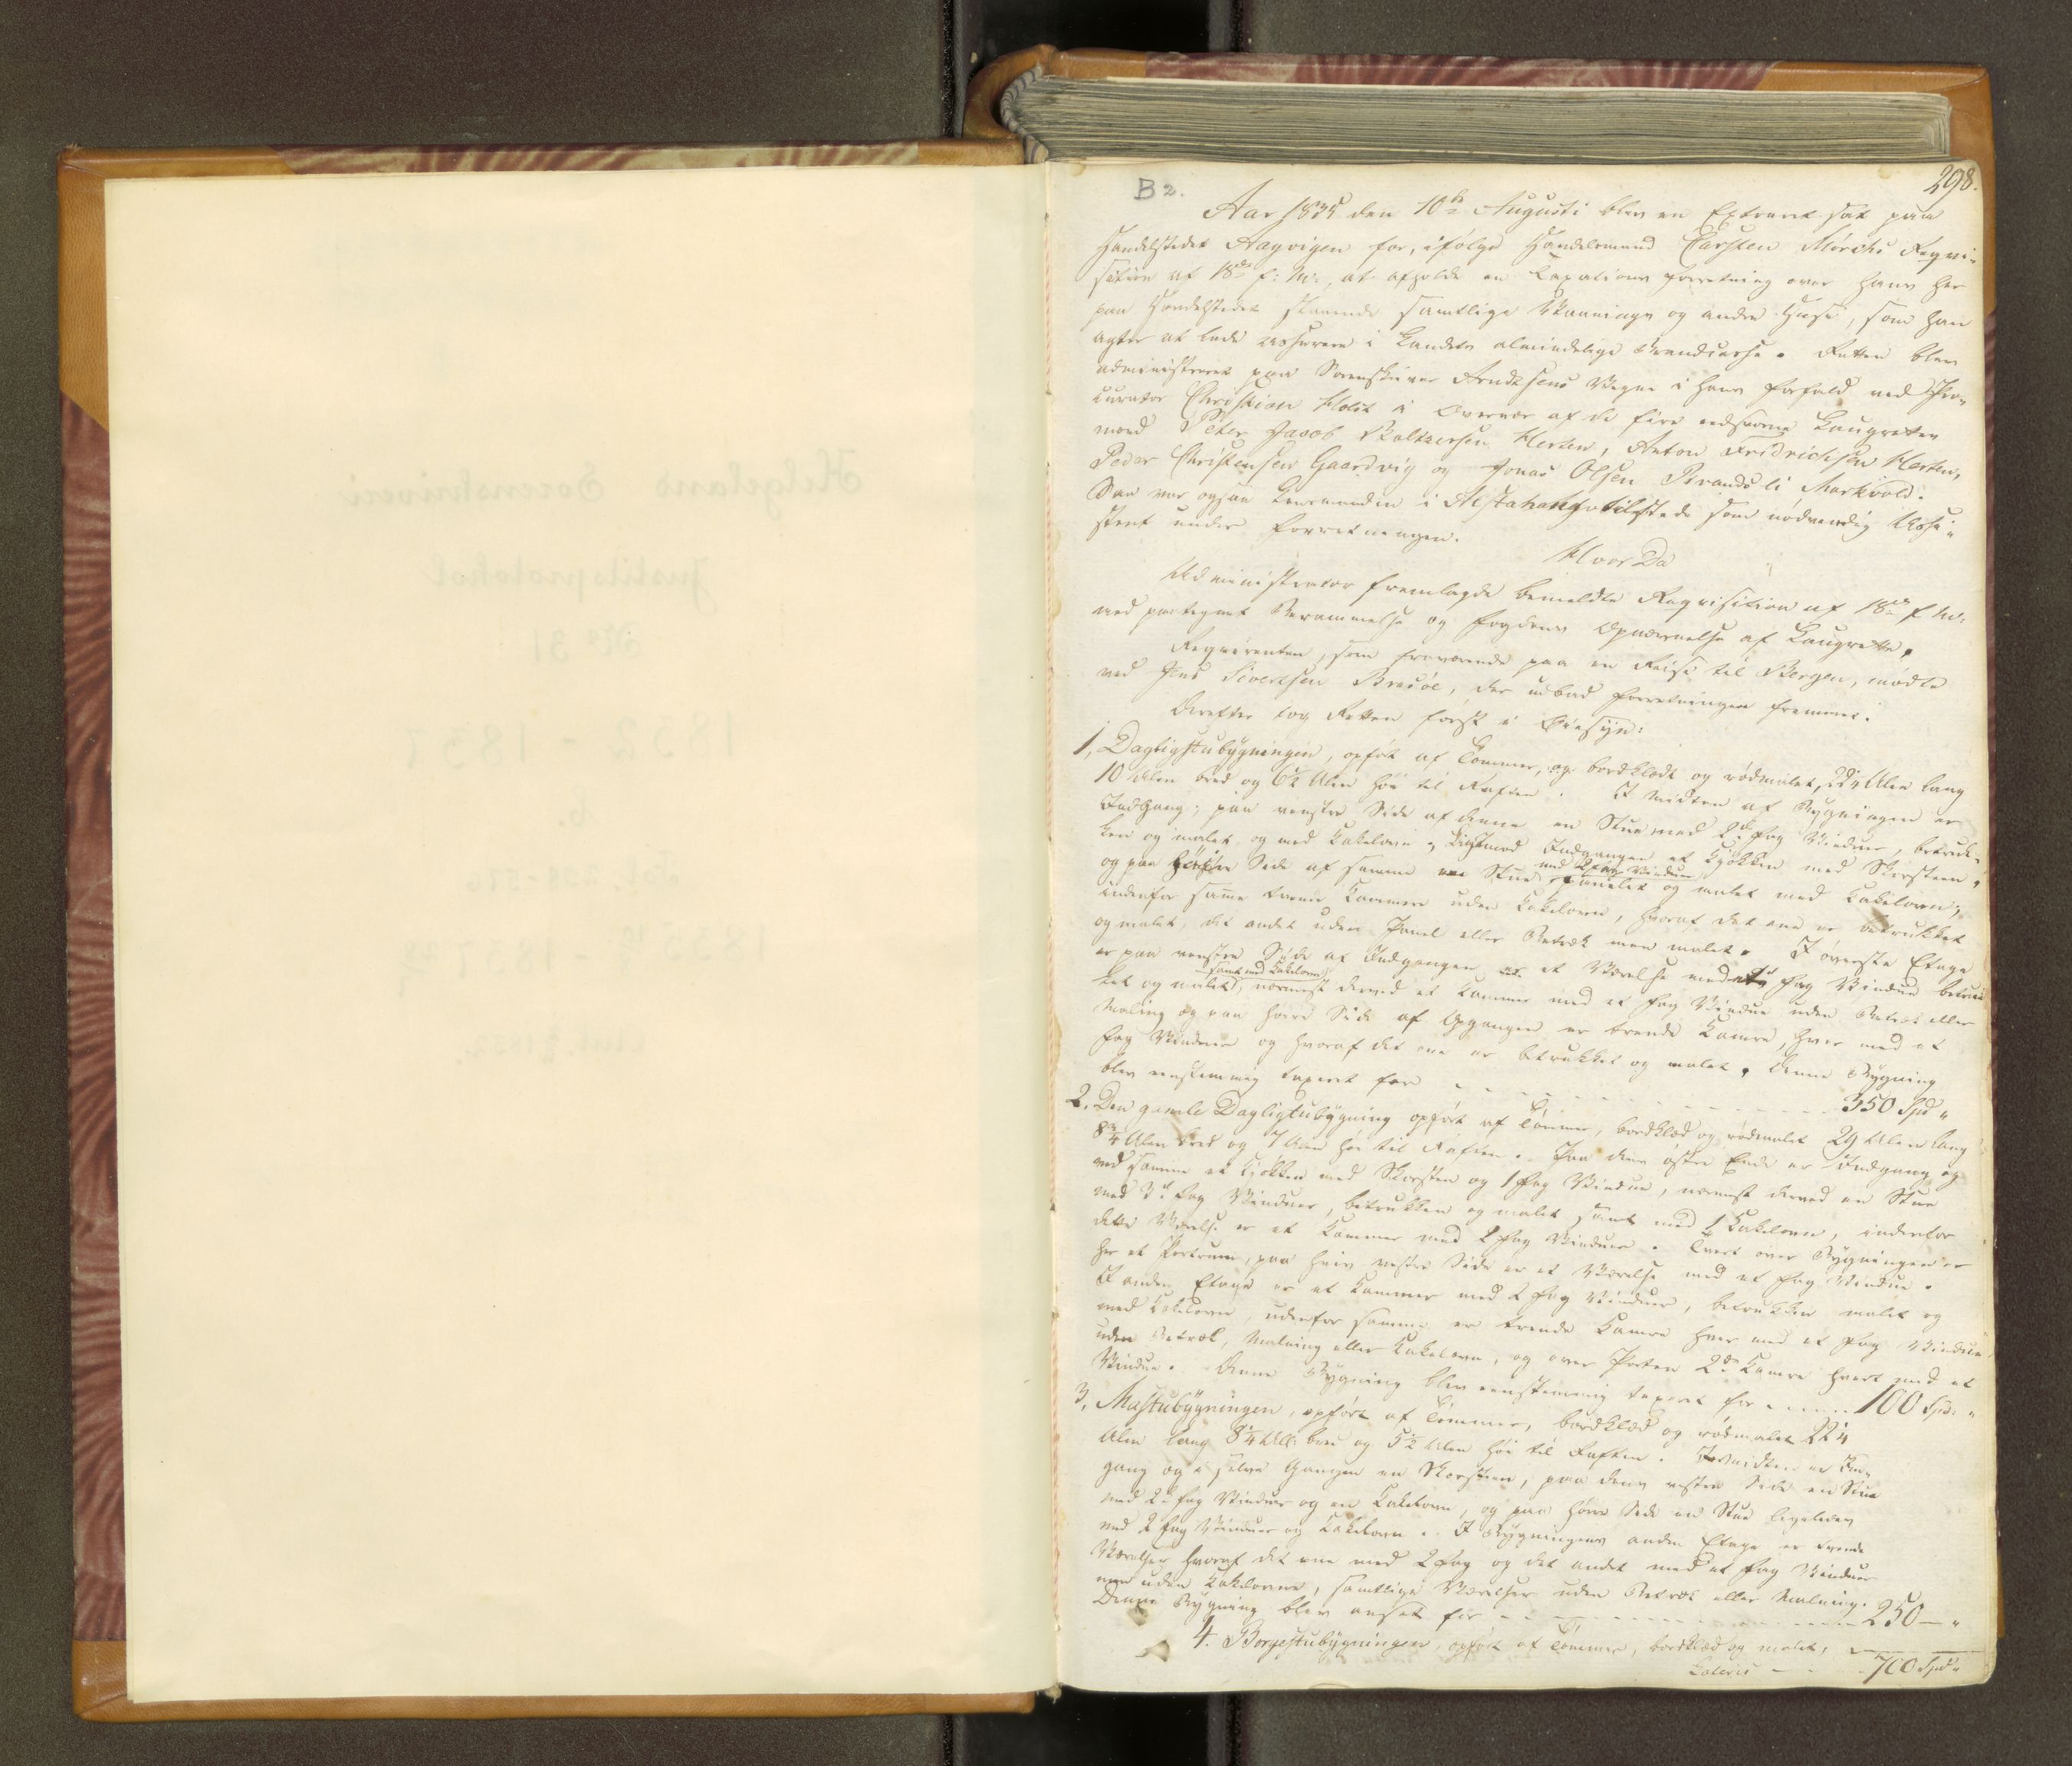 B 2.
298.
Aar 1835 den 10de Augusti blev en Extraret sat paa
Handelstedet Aagvigen for, ifølge Handelsmand Carsten Mørchs Reqvi-
sition af 18de f: M:, at afholde en Taxations forretning over hans her
paa Handelstedet staaende samtlige Vaaninger og andre Huse, som han
agter at lade assurere i Landets almindelige Brandcasse. Retten blev
administreret paa Sorenskriver Arndtsens Vegne i hans Forfald ved Pro-
curator Christian Holst i Overvær af de fire edsvorne Laugrettes
mænd Peter Jacob Baltzersen Herten, Anton Fridrichsen Herten,
Peder Christensen Gaardvig og Jonas Olsen Brandsli Markvold.
Saa var ogsaa Lensmanden i Alstahaug tilstede som nødvendig Assi-
stent under Forretningen.
Hvor Da
Administrator fremlagde bemeldte Reqvisition af 18de f. M:
med paategnet Berammelse og Fogdens Opnævnelse af Laugrette.
Reqvirenten, som fraværende paa en Reise til Bergen, mødte
ved Jens Sivertsen Brasøe, der udbad Forretningen fremmet.
Derefter tog Retten først i Øiesyn:
1, Dagligstubygningen, opført af Tømmer, og bordklædt og rødmalet, 22¼ Alen lang
10 Alen bred og 6½ Alen høi til Raften. I Midten af Bygningen er
Indgang; paa venstre Side af denne en Stue med 2de Fag Vinduer, betruk-
ken og malet og med Kakelovn; Ligimod Indgangen et Kjøkken med Skorsteen,
og paa høire Side af samme en Stue med 2 Fag Vinduer panelet og malet med Kakelovn;
indenfor samme tvende Kammere uden Kakelovn, hvoraf det ene er betrukket
og malet, det andet uden Panel eller Betræk men malet. I øverste Etage
er paa venstre Side af Indgangen et Værelse med et Fag Vindue betruk-
ket og malet samt med Kakelovn, nærmest derved et Kammer med et Fag Vindue uden Betræk eller
Maling og paa høire Side af Opgangen er trende Kamre, hver med et
Fag Vinduer og hvoraf det ene er betrukket og malet. Denne Bygning
blev eenstemmig taxeret for - - - 350 Spd "
2. Den gamle Dagligstubygning opført af Tømmer, bordklæd og rødmalet 29 Alen lang
8¾ Alen bred og 7 Alen høi til Raften. Paa dens østre Ende er Indgang og
ved samme et Kjøkken med Skorsten og 1 Fag Vindue, nærmest derved en Stue
med 3de Fag Vinduer, betrukken og malet samt med 1 Kakelovn, indenfor
dette Værelse er et Kammer med 2 Fag Vinduer. Tvert over Bygningen er
her et Portrum, paa hvis vestre Side er et Værelse med et Fag Vindue.
I anden Etage er et Kammer med 2 Fag Vinduer, betrukken malet og
med Kakelovn, udenfor samme er trende Kamre hver med et Fag Vindue
uden Betræk, Malning eller Kakelovn, og over Porten 2de Kamre hvert med et
Vindue. Denne Bygning blev eenstemmig taxeret for - - - 100 Spd: "
3, Mastubygningen, opført af Tømmer, bordklæd og rødmalet 22¼
Alen lang 8¼ Al: bred og 5½ Alen høi til Raften. I Midten er Ind-
gang og i selve Gangen en Skorsteen, paa dens vestre Side en Stue
med 2de Fag Vinduer og en Kakelovn, og paa høire Side en Stue ligeledes
med 2 Fag Vinduer og Kakelovn. I Bygningens anden Etage er tvende
Værelser hvoraf det ene med 2 Fag og det andet med et Fag Vinduer
men uden Kakelovne, samtlige Værelser uden Betræk eller Malning.
Denne Bygning blev ansat for - - - 250 — "
4. Borgestubygningen, opført af Tømmer, bordklæd og malet,
Lateris - - 700 Spd "